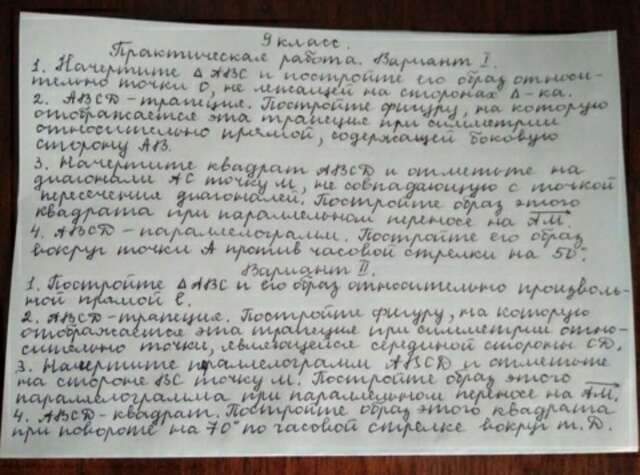 9 класс.
Практическая работа. Вариант I.
1. Начертите Δ ABC и постройте его образ относи-
тельно точки O, не лежащей на сторонах Δ-ка.
2. ABCD-трапеция. Постройте фигуру, на которую
отображается эта трапеция при симметрии
относительно прямой, содержащей боковую
сторону AB.
3. Начертите квадрат ABCD и отметьте на
диагонали AC точку M, не совпадающую с точкой
пересечения диагоналей. Постройте образ этого
квадрата при параллельном переносе на AM.
4. ABCD-параллелограмм. Постройте его образ
вокруг точки A против часовой стрелки на 50°.
Вариант II.
1. Постройте Δ ABC и его образ относительно произволь-
ной прямой l.
2. ABCD-трапеция. Постройте фигуру, на которую
отображается эта трапеция при симметрии отно-
сительно точки, являющейся серединой стороны CD.
3. Начертите параллелограмм ABCD и отметьте
на стороне BC точку M. Постройте образ этого
параллелограмма при параллельном переносе на AM.
4. ABCD-квадрат. Постройте образ этого квадрата
при повороте на 70° по часовой стрелке вокруг т. D.